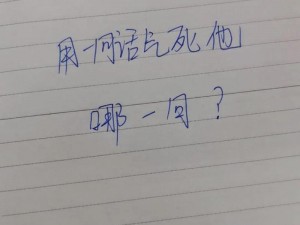 用一句话气死他
哪一句？